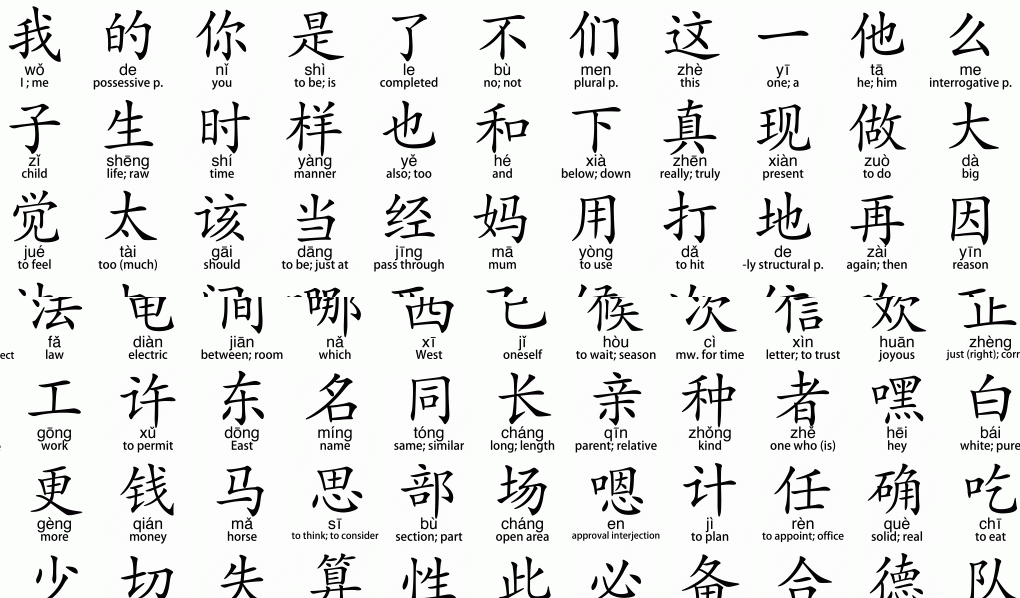 我 的 你 是 了 不 们 这 一 他 么
wǒ de nǐ shì le bù men zhè yī tā me
I ; me possessive p. you to be; is completed no; not plural p. this one; a he; him interrogative p.
子 生 时 样 也 和 下 真 现 做 大
zǐ shēng shí yàng yě hé xià zhēn xiàn zuò dà
child life; raw time manner also; too and below; down really; truly present to do big
觉 太 该 当 经 妈 用 打 地 再 因
jué tài gāi dāng jīng mā yòng dǎ de zài yīn
to feel too (much) should to be; just at pass through mum to use to hit -ly structural p. again; then reason
法 电 间 哪 西 己 候 次 信 欢 正
fǎ diàn jiān nǎ xī jǐ hòu cì xìn huān zhèng
ect law electric between; room which West oneself to wait; season mw. for time letter; to trust joyous just (right); corr
工 许 东 名 同 长 亲 种 者 嘿 白
gōng xǔ dōng míng tóng cháng qīn zhǒng zhě hēi bái
work to permit East name same; similar long; length parent; relative kind one who (is) hey white; pure
更 钱 马 思 部 场 嗯 计 任 确 吃
gèng qián mǎ sī bù cháng en jì rèn què chī
more money horse to think; to consider section; part open area approval interjection to plan to appoint; office solid; real to eat
少 切 失 算 性 此 必 备 合 德 队